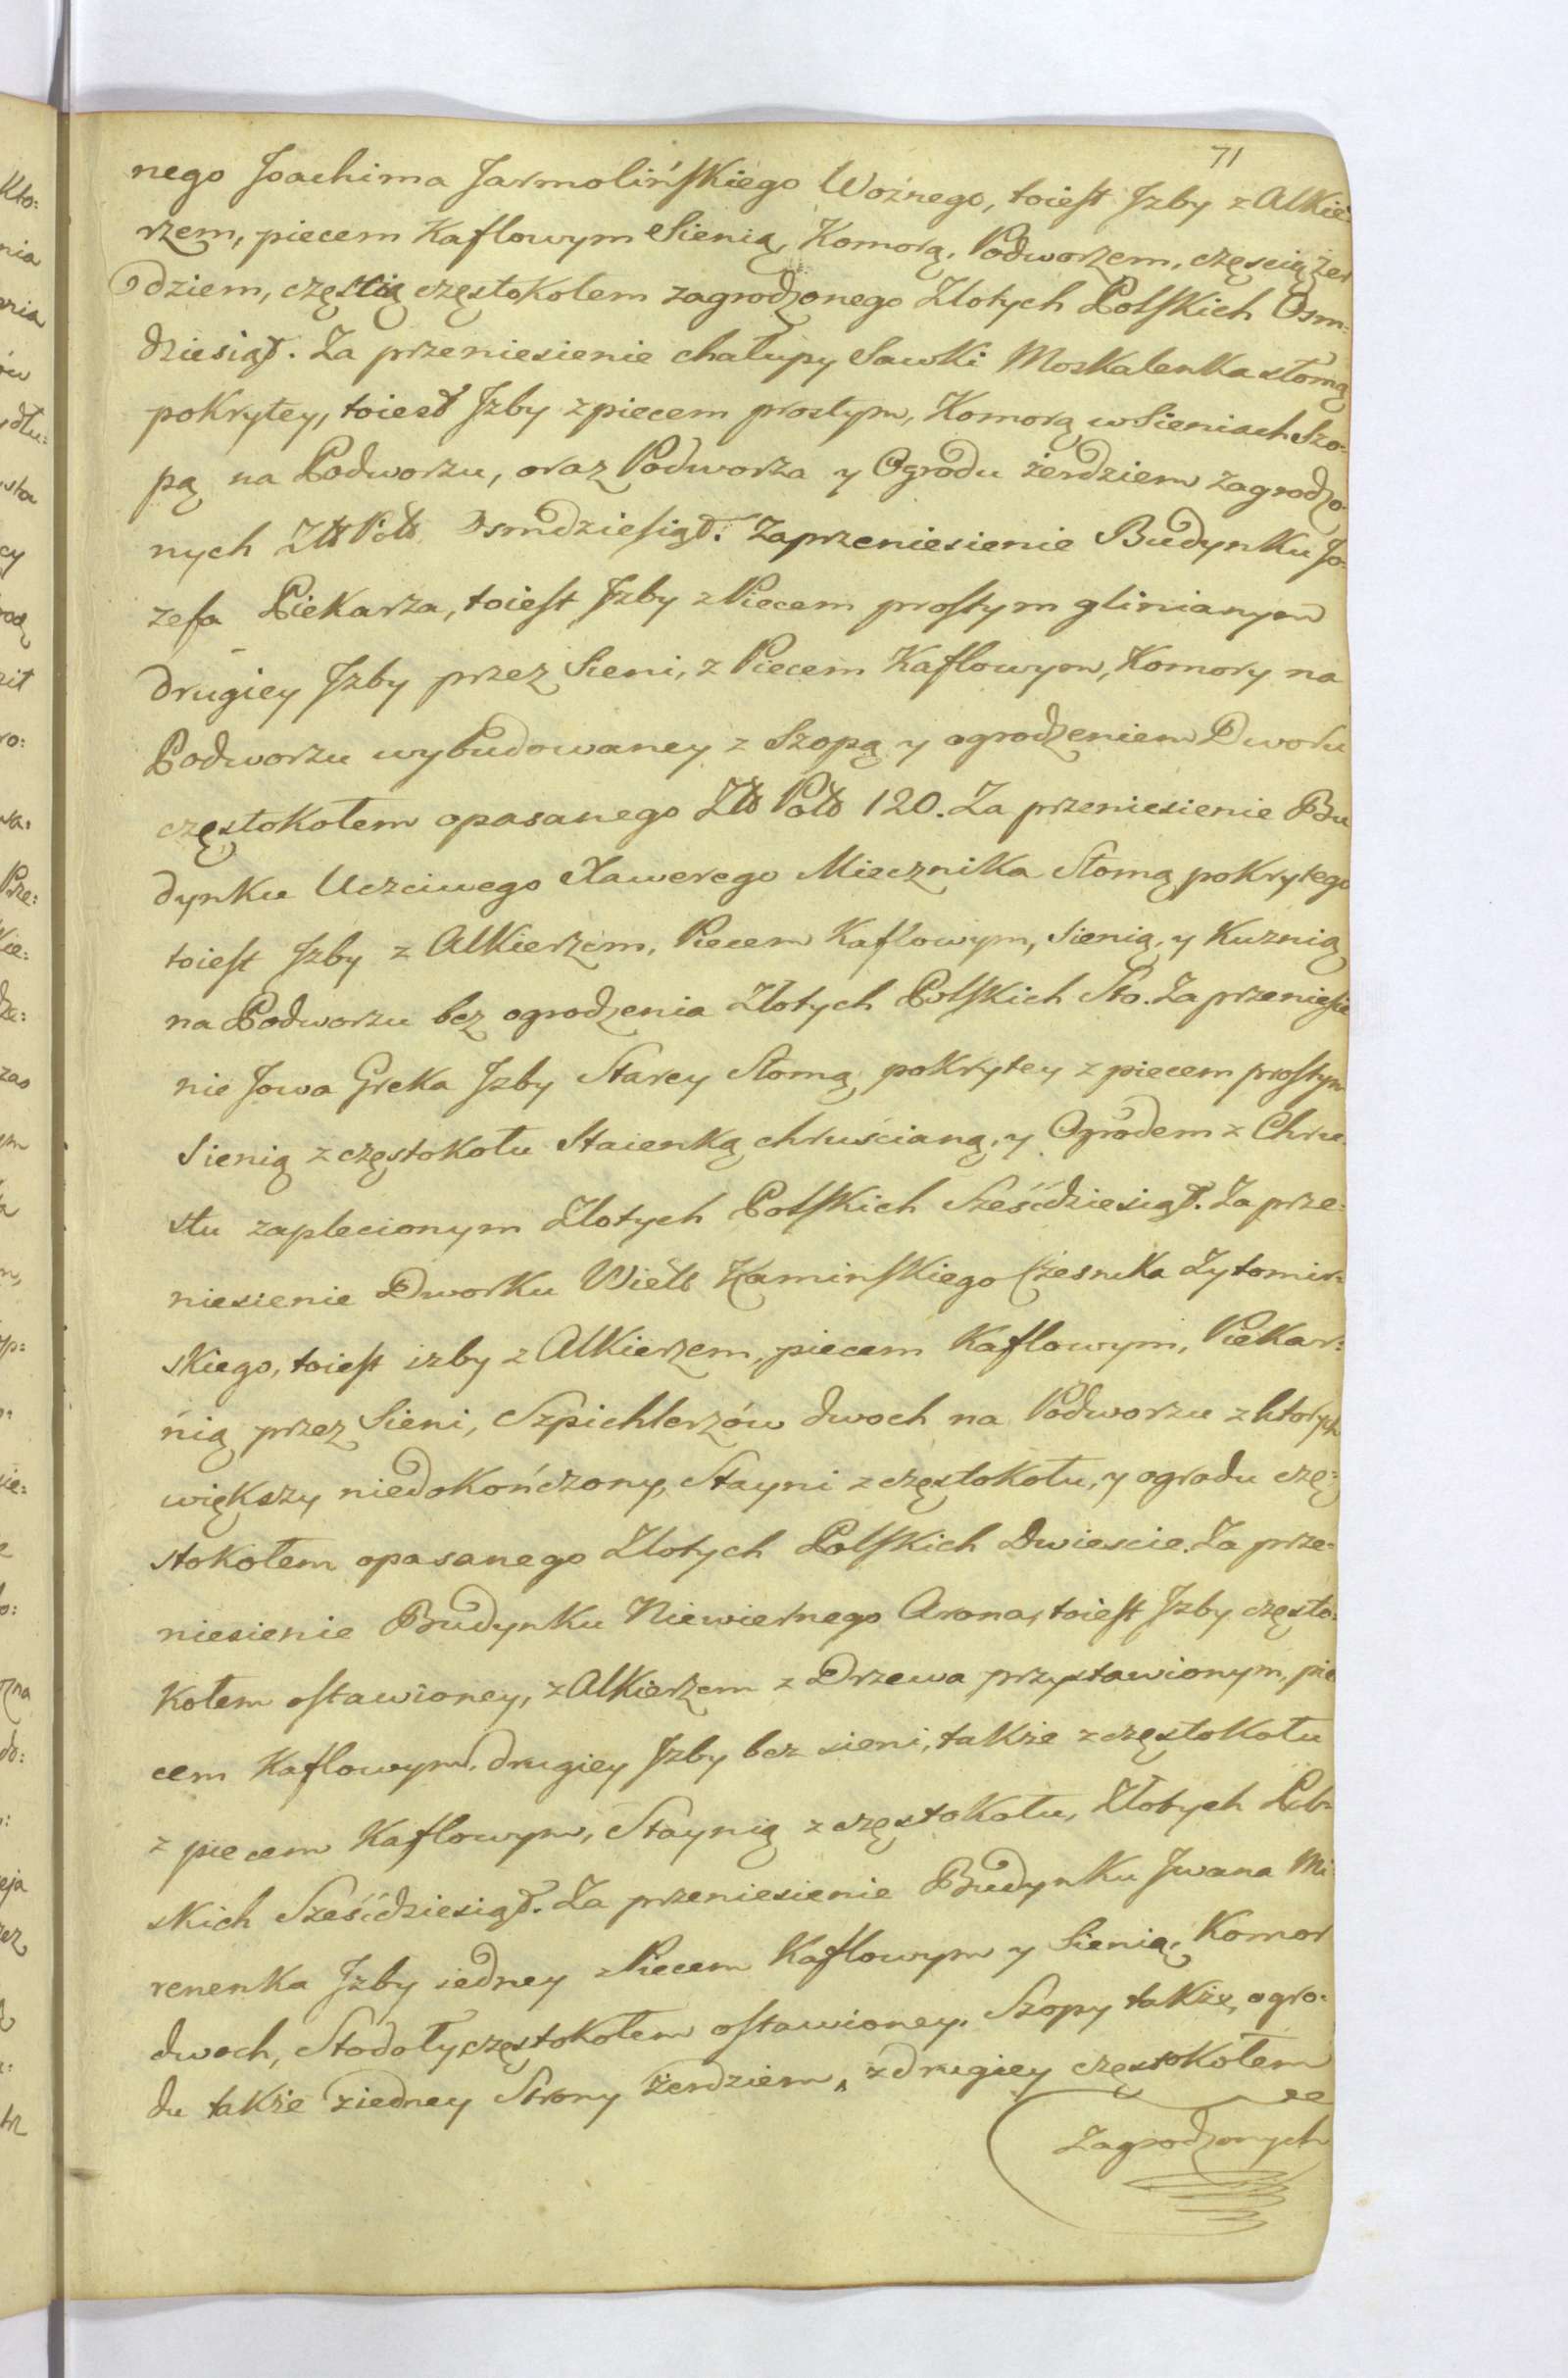 71
nego Joachima Jarmolińskiego Woźnego, toiest Jzby z Alkie-
rzem, piecem Kaflowym Sienią, Komorą, Podworzem, częscią żer
dziem, częscią częstokołem zagrodzonego Złotych Polskich Osm-
dziesiąt. Za przeniesienie chałupy Sawki Moskalenka słomą
pokrytey, toiest Jzby z piecem prostym, Komorą w Sieniach Szo-
pą na Podworzu, oraz Podworza y Ogrodu żerdziem zagrodzo-
nych Złł Poll Osmdziesiąt. Za przeniesienie Budynku Jo-
zefa Piekarza, toiest Jzby z Piecem prostym glinianym
drugiey Jzby przez Sieni, z Piecem Kaflowym, Komory na
Podworzu wybudowaney z Szopą y ogrodzeniem Dworu
częstokołem opasanego Złł Poll 120. Za przeniesienie Bu
dynku Uczciwego Xawerego Miecznika Słomą pokrytego
toiest Jzby z Alkierzem, Piecem Kaflowym, Sienią, y Kuznią
na Podworzu bez ogrodzenia Złotych Polskich Sto. Za przeniesie
nie Jowa Greka Jzby Starey Słomą pokrytey z piecem prostym
Sienią z częstokołu Staienką chruścianą, y Ogrodem z Chru-
stu zaplecionym Złotych Polskich Sześćdziesiąt. Za prze-
niesienie Dworku Wielb Kaminskiego Czesnika Zytomir-
skiego, toiest izby z Alkierzem, piecem Kaflowym, Piekar-
nią przez Sieni, Szpichlerzów dwoch na Podworzu z ktorych
większy niedokończony, Stayni z częstokołu, y ogrodu czę-
stokołem opasanego Złotych Polskich Dwiescie. Za prze-
niesienie Budynku Niewiernego Arona, toiest Jzby często-
kołem ostawioney, z Alkierzem z Drzewa przystawionym, pie
cem Kaflowym, drugiey Jzby bez sieni, także z częstokołu
z piecem Kaflowym, Staynią z częstokołu, Złotych Pol-
skich Sześćdziesiąt. Za przeniesienie Budynku Jwana Mi
renenka Jzby iedney z Piecem Kaflowym y Sienią, Komor
dwoch, Stodoły częstokołem ostawioney, Szopy także, ogro-
du także ziedney Strony żerdziem, z drugiey częstokołem
Zagrodzonych